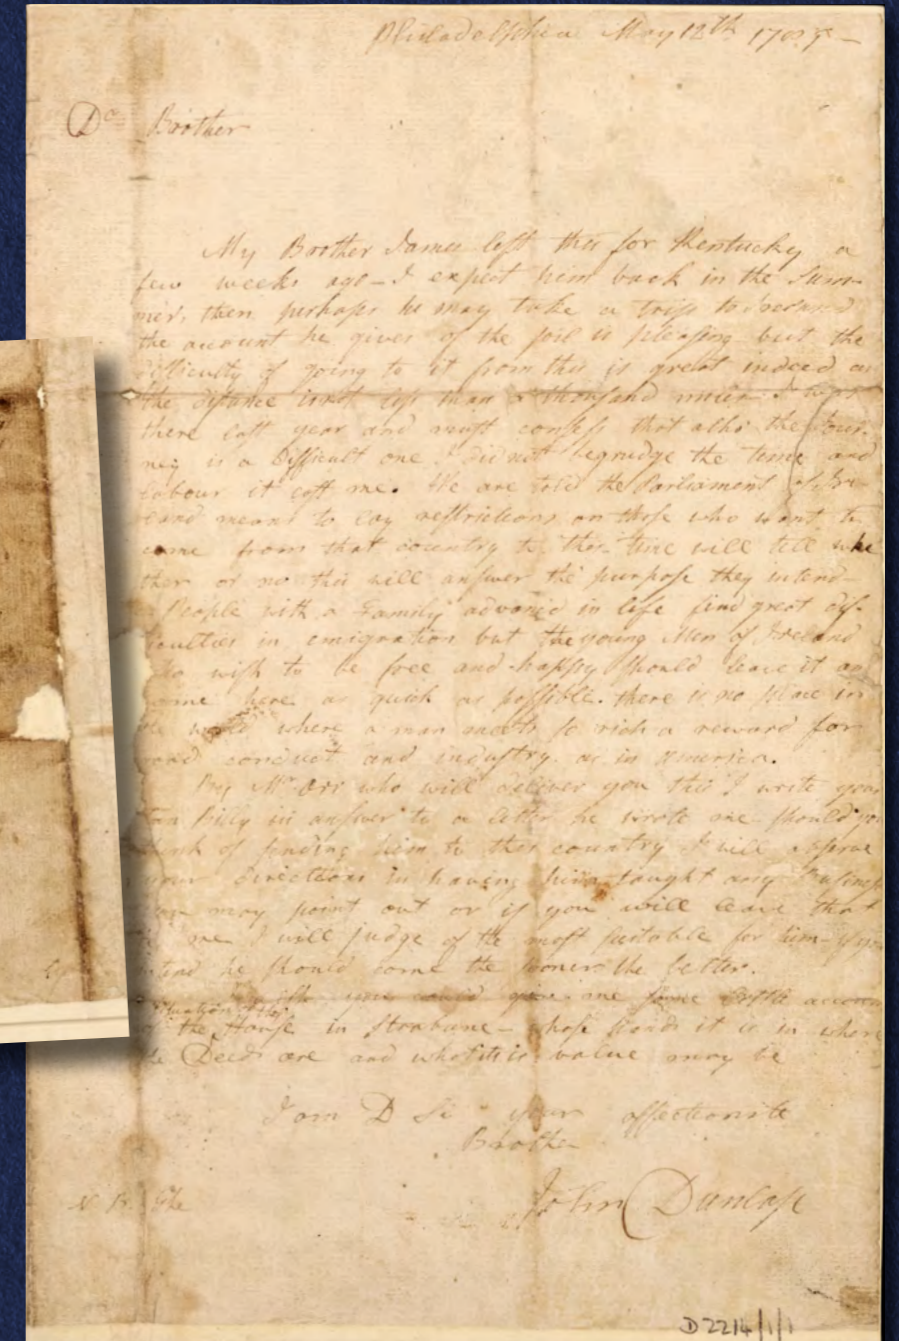 Philadelphia May 12th 178
Dr Brother
My Brother James left this for Kentucky a
few weeks ago - I expect him back in the Sum-
mer, then perhaps he may take a trip to Ireland
the account he gives of the soil is pleasing but the
difficulty of going to it from this is great indeed as
the distance is not less than a thousand miles - I was
there last year and must confess that altho the Jour-
ney is a Difficult one I did not begrudge the time and
Labour it cost me. We are told the Parliament of Ire-
land means to lay restrictions on those who want to
come from that country to this - time will tell whe
ther or no this will answer the purpose they intend -
People with a Family advanc'd in life find great dif-
ficulties in emigration but the young Men of Ireland
who wish to be free and happy should leave it and
come here as quick as possible. there is no place in
the world where a man meets so rich a reward for
good conduct and industry as in America.
By Mr Orr who will deliver you this I write your
son Billy in answer to a letter he wrote me should you
think of sending him to this country I will observe
your directions in having him taught any Business
you may point out or if you will leave that
to me I will judge of the most suitable for him - if you
intend he should come the sooner the better.
I wish you would give me some little account
situation of the
of the House in Strabane - whose hands it is in where
the Deeds are and what its value may be
I am D Sir your affectionate
Brother
John Dunlap
N B The
D2214/1/1